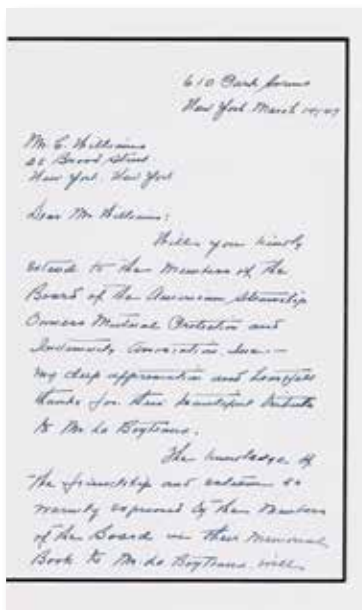 610 Park Avenue
New York March
Mr. E. Williams
25 Broad Street
New York, New York
Dear Mr Williams:
Will you kindly
extend to the Members of the
Board of the American Steamship
Owners Mutual Protection and
Indemnity Association Inc.—
my deep appreciation and heartfelt
thanks for their beautiful tribute
to Mr de
The knowledge of
the friendship and esteem so
warmly expressed by the Members
of the Board in their Memorial
Book to Mr. de will